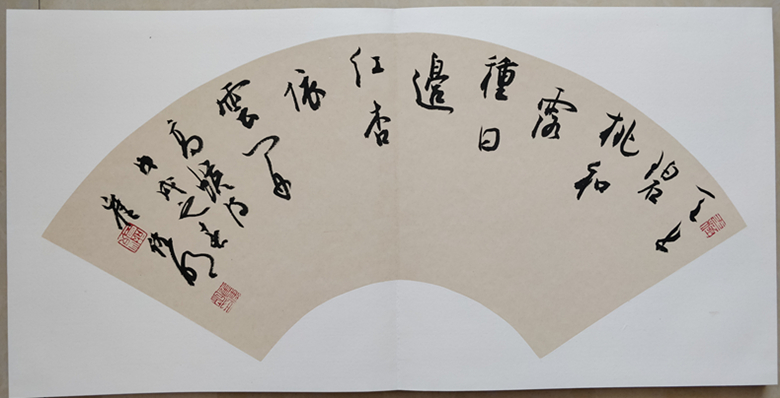 天上
碧
桃和
露
種日
邊
红杏
依
雲栽
高蟾句
戊戌之春